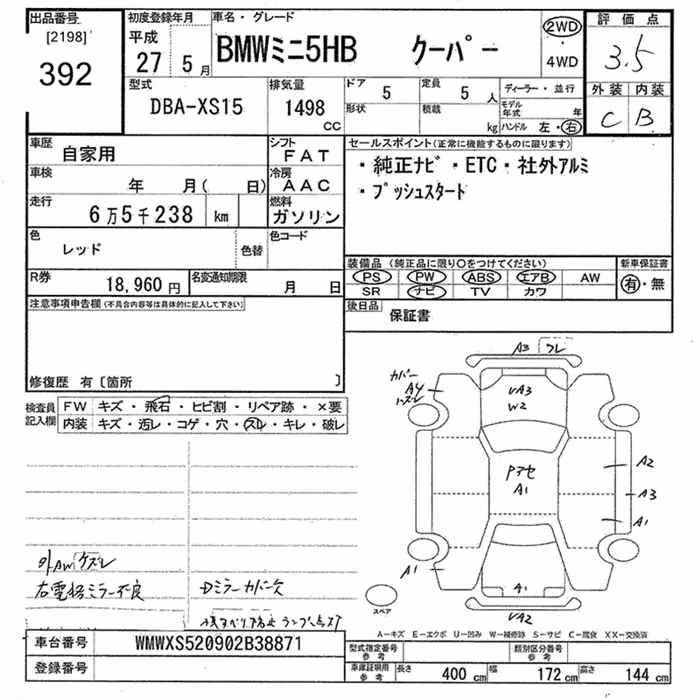 出品番号 初度登録年月 車名・グレード 評価点
[2198] 平成
392 27 5月 BMWミニ5HB クーパー 2WD・4WD 3.5
型式 排気量 ドア 5 定員 5人 ディーラー・並行 外装 内装
DBA-XS15 1498 cc 形状 積載 kg モデル年式 年 C B
ハンドル 左・右
車歴 自家用 シフト FAT セールスポイント(正常に機能するものに限ります)
車検 年 月( 日) 冷房 AAC ・純正ナビ・ETC・社外アルミ
・プッシュスタート
走行 6万5千238 km 燃料 ガソリン
色 レッド 色替 色コード
装備品 (純正品に限り○をつけてください) 新車保証書
R券 18,960円 名変通知期限 月 日 PS PW ABS エアB AW 有・無
SR ナビ TV カワ
注意事項申告欄(不具合内容等は具体的に記入して下さい) 後日品 保証書
修復歴 有〔箇所 〕
検査員記入欄 FW キズ・飛石・ヒビ割・リペア跡・×要
内装 キズ・汚レ・コゲ・穴・スレ・キレ・破レ
A3 フレ
カバー
A4
ハズレ
UA3
W2
Pアセ
A1
A2
A3
A1
A1
A1
UA2
スペア
外AWケズレ
右電格ミラー不良 Dミラーカバー欠
A-キズ E-エクボ U-凹み W-補修跡 S-サビ C-腐食 XX-交換済
車台番号 WMWXS520902B38871 型式指定番号 参考 類別区分番号 参考
登録番号 車庫証明用 参考 長さ 400 cm 幅 172 cm 高さ 144 cm